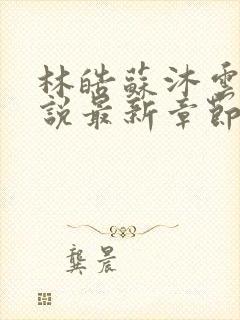 林皓蘇沐雲
說最新章節
龔晨